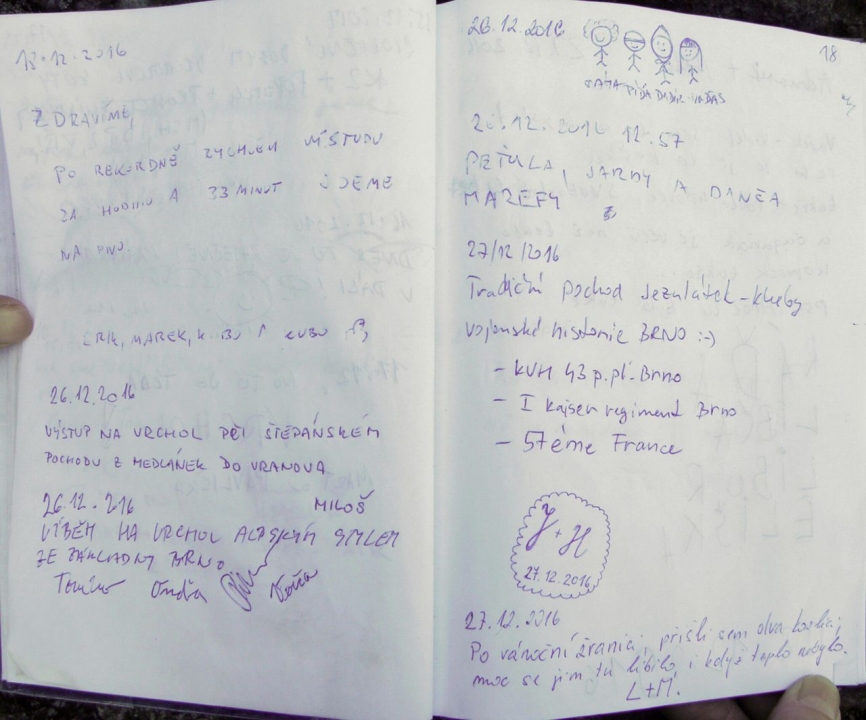 18.12.2016
ZDRAVÍME,
PO REKORDNĚ RYCHLÉM VÝSTUPU
ZA HODINU A 33 MINUT JDEME
NA PIVO
ERIK, MAREK,
26.12.2016
VÝSTUP NA VRCHOL PŘI ŠTĚPÁNSKÉM
POCHODU Z MEDLÁNEK DO VRANOVA
MILOŠ
26.12.2016
VÝBĚH NA VRCHOL ALPSKÝM STYLEM
ZE ZÁKLADNY BRNO
Ondra
26.12.2016
18
TÁTA
26.12.2016 12.57
PEŤULA, JARNY A
MAZEFY
27/12/2016
Tradiční pochod Jezulátek - kluby
vojenské historie BRNO :-)
- KVH 43 p.pl. Brno
- I kajser regiment Brno
- 57éme France
J + H
27.12.2016
27.12.2016
Po vánoční žranici, přišli sem dva
moc se jim tu líbilo i když teplo nebylo.
L+M.